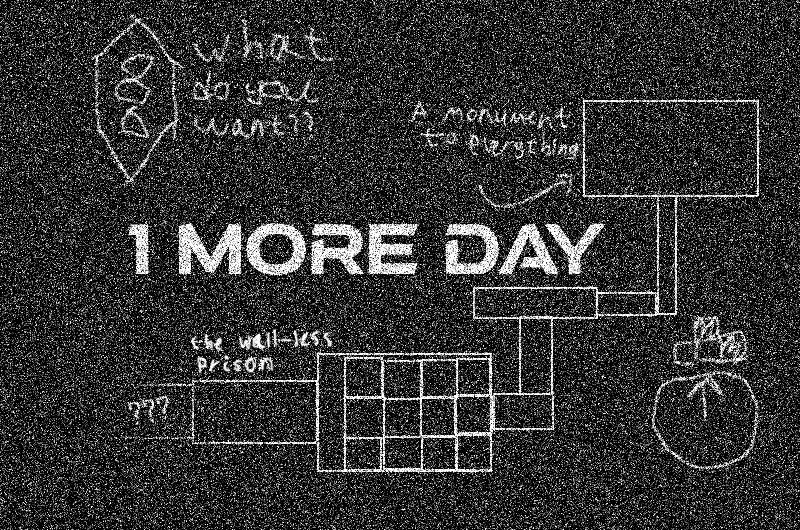 what
do you
want??
A monument
to everything
1 MORE DAY
the wall-less
prison
???